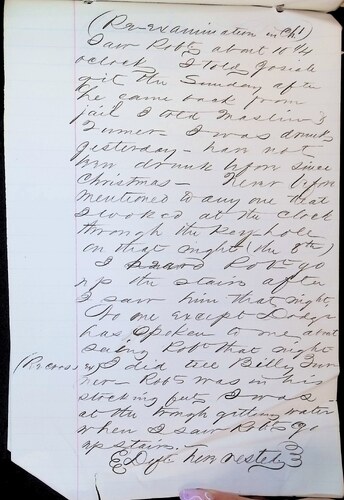 (Re-examination in Ch)
Saw Robt about 10 1/4
oclock I told Josiah
git the Sunday after
he came back from
jail I told Maslin &
Turner I was drunk
yesterday - have not
been drunk before since
Christmas - Never before
mentioned to any one that
I looked at the Clock
through the Key hole
on that night (the 8th)
I heard Robt go
up the stairs after
I saw him that night.
No one except Dodge
has spoken to me about
seeing Robt that night
(Recross ex) I did tell Billy Tur
ner - Robt was in his
stocking feet, I was
at the trough gitting water
when I saw Robt go
up stairs.